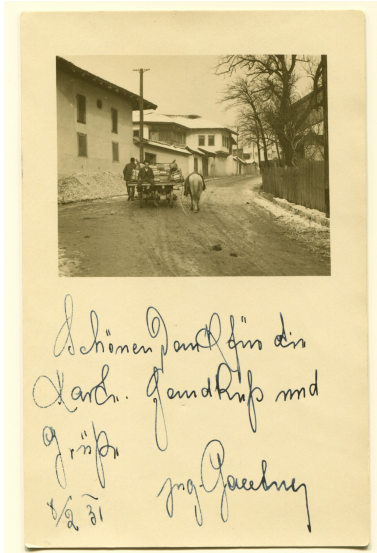 Schönen Dank für die
Karte. Handkuß und
Grüße
8/2 31 Ing.